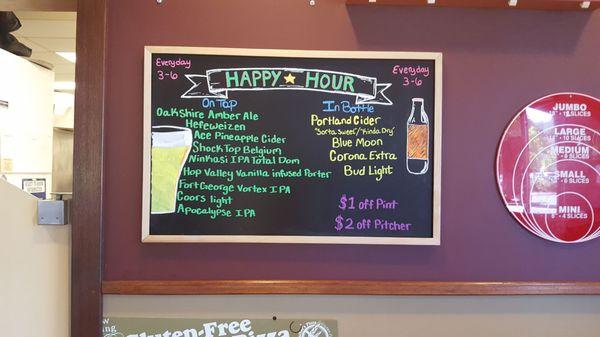 Everyday
3-6
HAPPY HOUR
Everyday
3-6
On Tap
Oakshire Amber Ale
Hefeweizen
Ace Pineapple Cider
ShockTop Belgium
Ninkasi IPA Total Dom
Hop Valley Vanilla infused Porter
Fort George Vortex IPA
Coors light
Apocalypse IPA
In Bottle
Portland Cider
"Sorta Sweet/"Kinda Dry"
Blue Moon
Corona Extra
Bud Light
$1 off Pint
$2 off Pitcher
JUMBO
SLICES
LARGE
SLICES
MEDIUM
SLICES
SMALL
6 SLICES
MINI
4 SLICES
Gluten-Free
Pizza